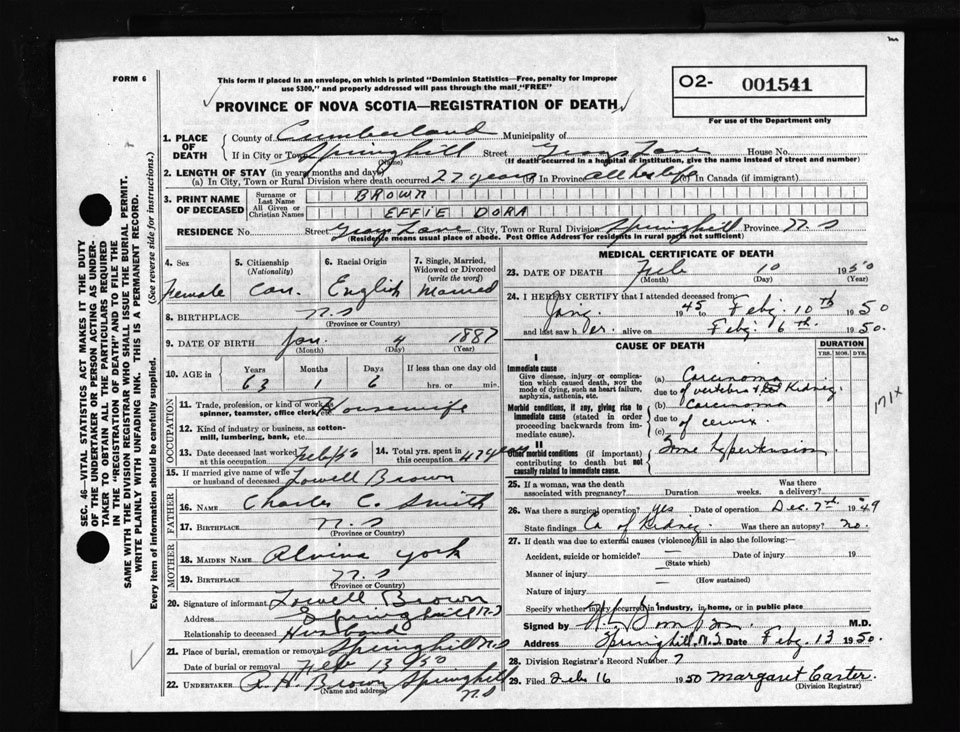 FORM 6
This form if placed in an envelope, on which is printed "Dominion Statistics—Free, penalty for improper
use $300," and properly addressed will pass through the mail "FREE"
O2- 001541
For use of the Department only
PROVINCE OF NOVA SCOTIA—REGISTRATION OF DEATH
1. PLACE OF DEATH County of Cumberland Municipality of
If in City or Town Springhill Street Grays Lane House No.
(Name) (If death occurred in a hospital or institution, give the name instead of street and number)
2. LENGTH OF STAY (in years, months and days)
(a) In City, Town or Rural Division where death occurred 22 years (b) In Province all her life (c) In Canada (if immigrant)
3. PRINT NAME OF DECEASED Surname or Last Name BROWN
All Given or Christian Names EFFIE DORA
RESIDENCE No. Street Grays Lane City, Town or Rural Division Springhill Province N.S
(Residence means usual place of abode. Post Office Address for residents in rural parts not sufficient)
4. Sex 5. Citizenship (Nationality) 6. Racial Origin 7. Single, Married, Widowed or Divorced (write the word)
Female Can. English Married
8. BIRTHPLACE N.S
(Province or Country)
9. DATE OF BIRTH Jan. 4 1887
(Month) (Day) (Year)
10. AGE in Years Months Days If less than one day old
63 1 6 hrs. or min.
OCCUPATION
11. Trade, profession, or kind of work as spinner, teamster, office clerk, etc. Housewife
12. Kind of industry or business, as cotton-mill, lumbering, bank, etc.
13. Date deceased last worked at this occupation 14. Total yrs. spent in this occupation 47 years
15. If married give name of wife or husband of deceased Lowell Brown
FATHER
16. NAME Charles C. Smith
17. BIRTHPLACE N.S
(Province or Country)
MOTHER
18. MAIDEN NAME Alvina York
19. BIRTHPLACE N.S
(Province or Country)
20. Signature of informant Lowell Brown
Address Springhill N.S
Relationship to deceased Husband
21. Place of burial, cremation or removal Springhill N.S
Date of burial or removal Feb 13 1950
22. UNDERTAKER R. H. Brown Springhill N.S
(Name and address)
MEDICAL CERTIFICATE OF DEATH
23. DATE OF DEATH Feb 10 1950
(Month) (Day) (Year)
24. I HEREBY CERTIFY that I attended deceased from:
1945 to Feby. 10th 1950
and last saw her alive on Feby. 1950.
CAUSE OF DEATH DURATION
YRS. MOS. DYS.
I
Immediate cause
Give disease, injury or complication which caused death, NOT the mode of dying, such as heart failure, asphyxia, asthenia, etc.
(a) Carcinoma
due to of Kidney.
Morbid conditions, if any, giving rise to immediate cause (stated in order proceeding backwards from immediate cause).
(b) Carcinoma
due to of cervix.
(c)
II
Other morbid conditions (if important) contributing to death but not causally related to immediate cause.
Some hypertension
171X
25. If a woman, was the death associated with pregnancy? Duration weeks. Was there a delivery?
26. Was there a surgical operation? yes Date of operation Dec. 7th 1949
State findings Ca of Kidney. Was there an autopsy? no.
27. If death was due to external causes (violence) fill in also the following:—
Accident, suicide or homicide? — Date of injury 19
(State which)
Manner of injury —
(How sustained)
Nature of injury
Specify whether injury occurred in industry, in home, or in public place
Signed by M.D.
Address Springhill. N.S Date Feby. 13 1950.
28. Division Registrar's Record Number 7
29. Filed Feb 16 1950 Margaret Carter.
(Division Registrar)
SEC. 46—VITAL STATISTICS ACT MAKES IT THE DUTY
OF THE UNDERTAKER OR PERSON ACTING AS UNDER-
TAKER TO OBTAIN ALL THE PARTICULARS REQUIRED
IN THE "REGISTRATION OF DEATH" AND TO FILE THE
SAME WITH THE DIVISION REGISTRAR WHO SHALL ISSUE THE BURIAL PERMIT.
WRITE PLAINLY WITH UNFADING INK. THIS IS A PERMANENT RECORD.
Every item of information should be carefully supplied. (See reverse side for instructions.)